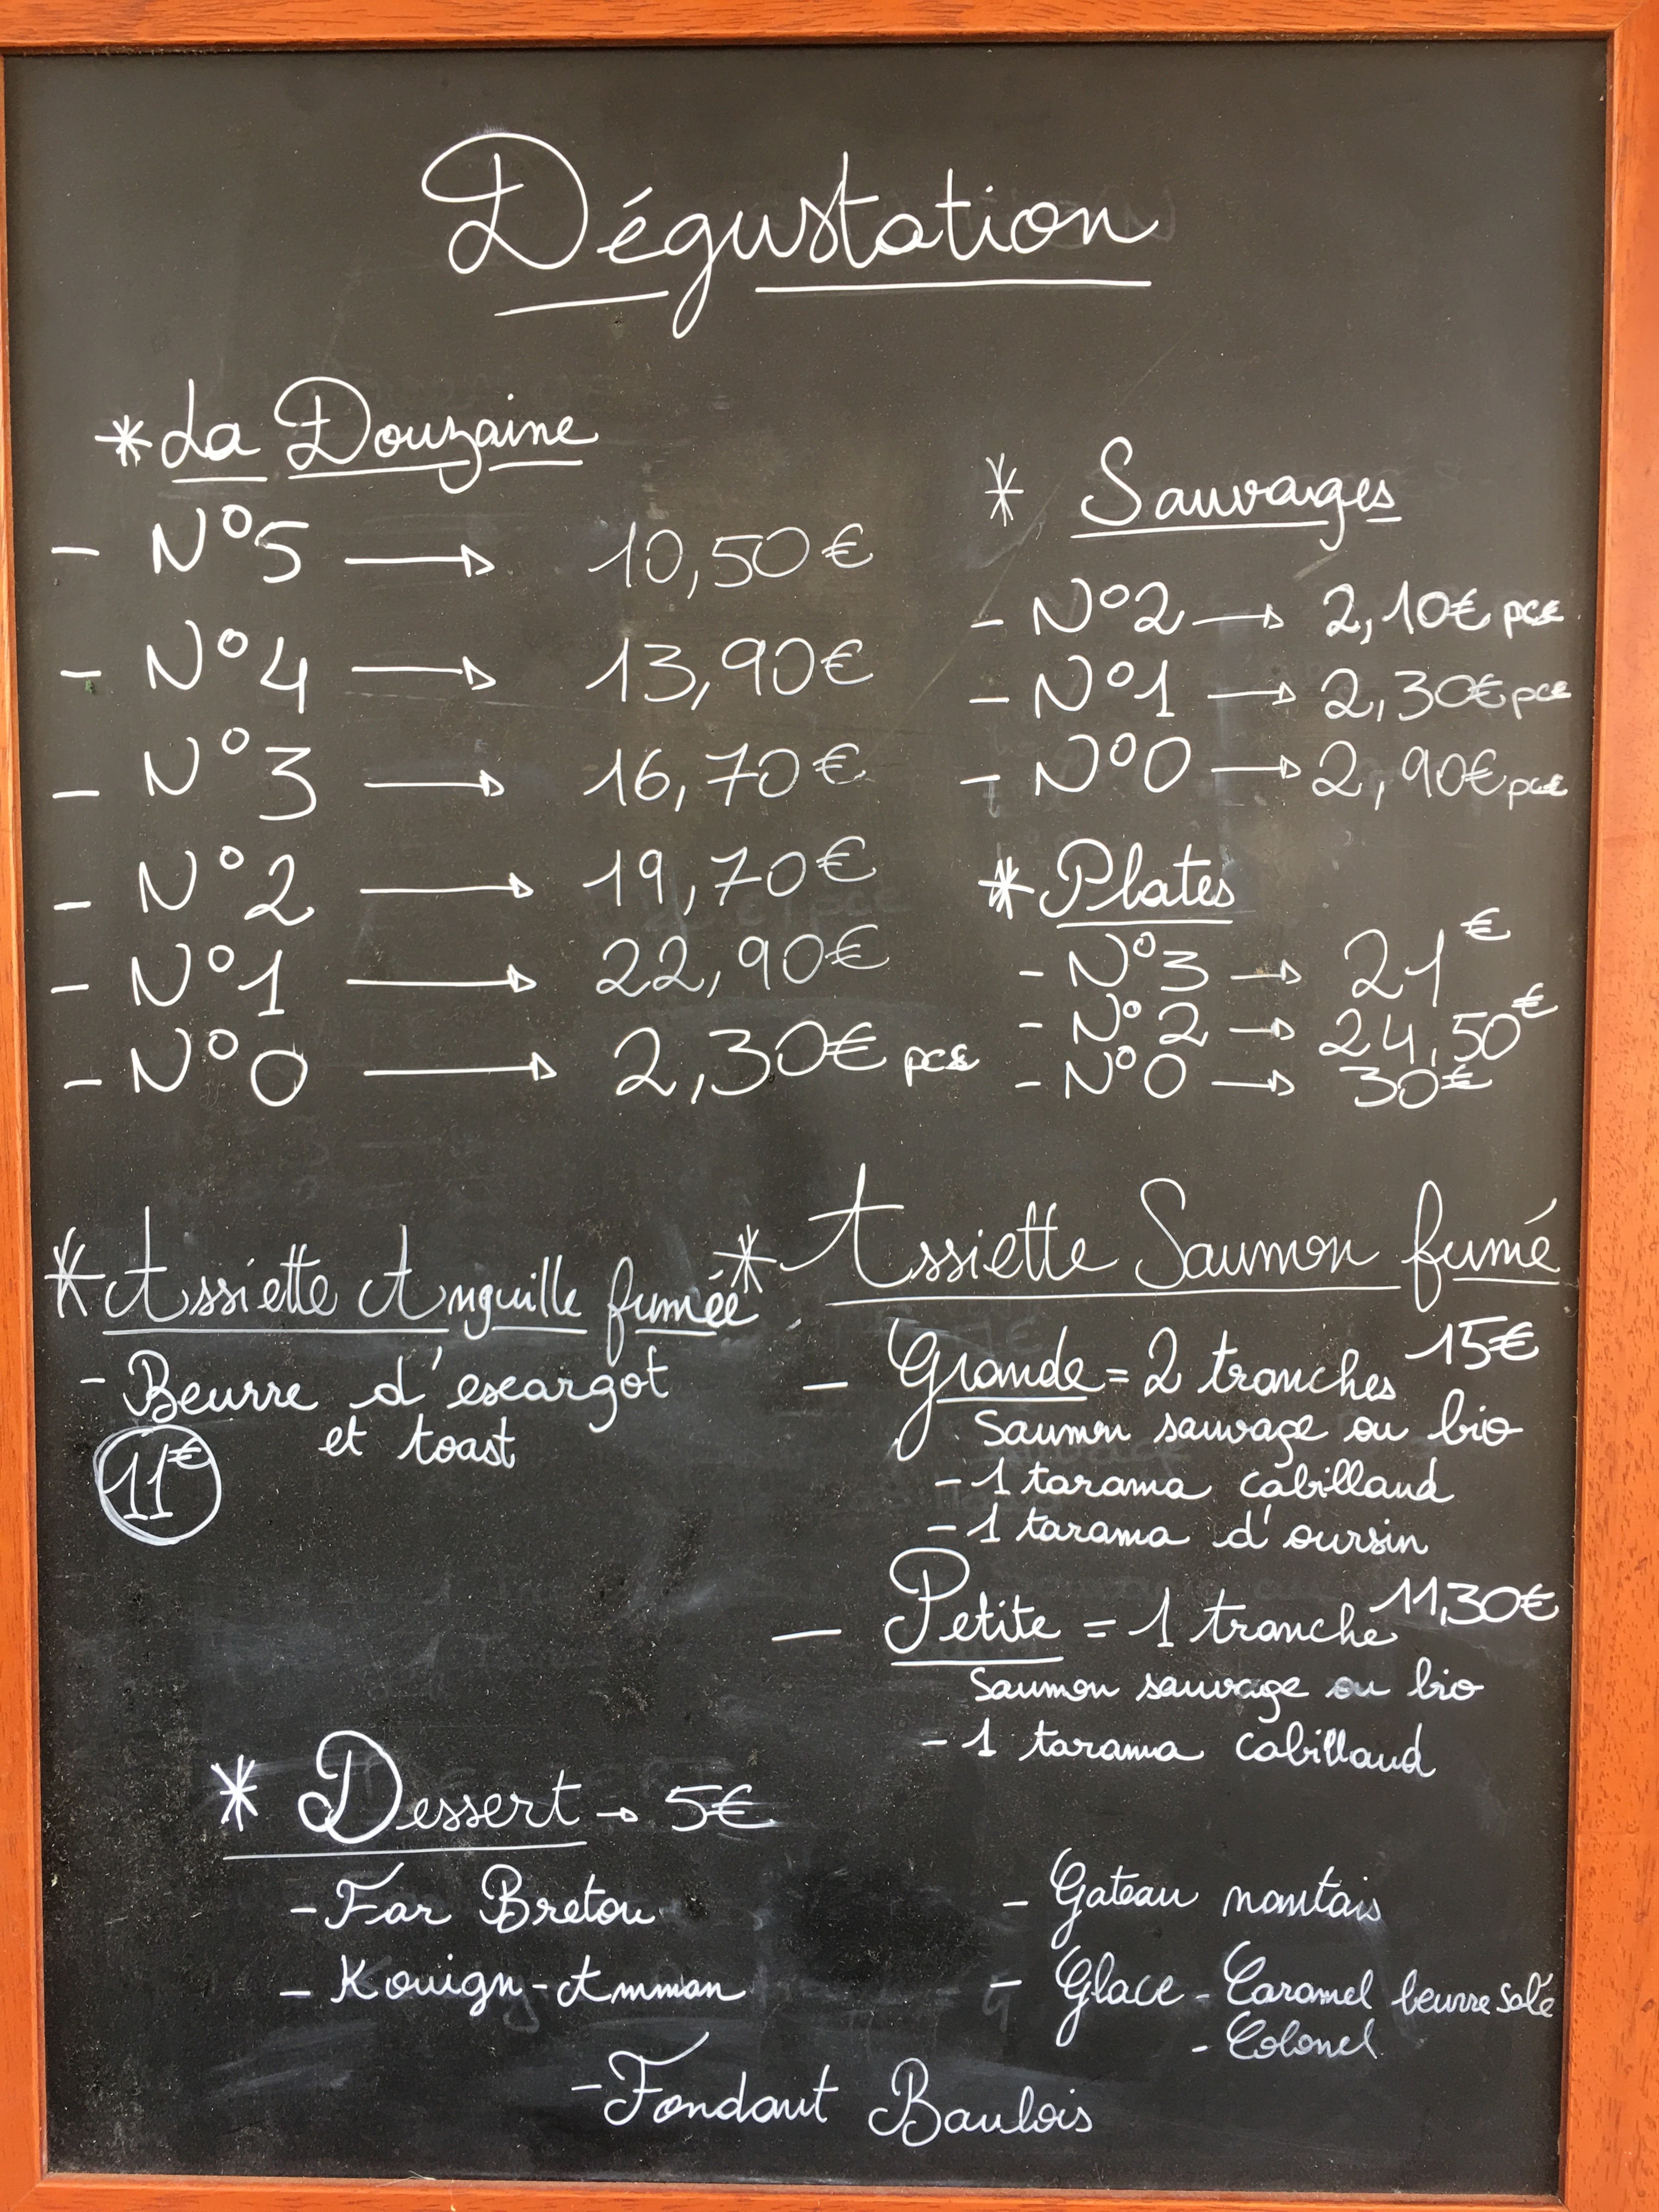 Dégustation
* La Douzaine
- N°5 → 10,50€
- N°4 → 13,90€
- N°3 → 16,70€
- N°2 → 19,70€
- N°1 → 22,90€
- N°0 → 2,30€ pce
* Sauvages
- N°2 → 2,10€ pce
- N°1 → 2,30€ pce
- N°0 → 2,90€ pce
* Plates
- N°3 → 21€
- N°2 → 24,50€
- N°0 → 30€
* Assiette Anguille fumée
- Beurre d'escargot
et toast
11€
* Assiette Saumon fumé
- Grande = 2 tranches 15€
Saumon sauvage ou bio
- 1 tarama cabillaud
- 1 tarama d'oursin
- Petite = 1 tranche 11,30€
Saumon sauvage ou bio
- 1 tarama cabillaud
* Dessert → 5€
- Far Breton
- Kouign-Amman
- Gateau nantais
- Glace - Caramel beurre salé
- Colonel
- Fondant Baulois